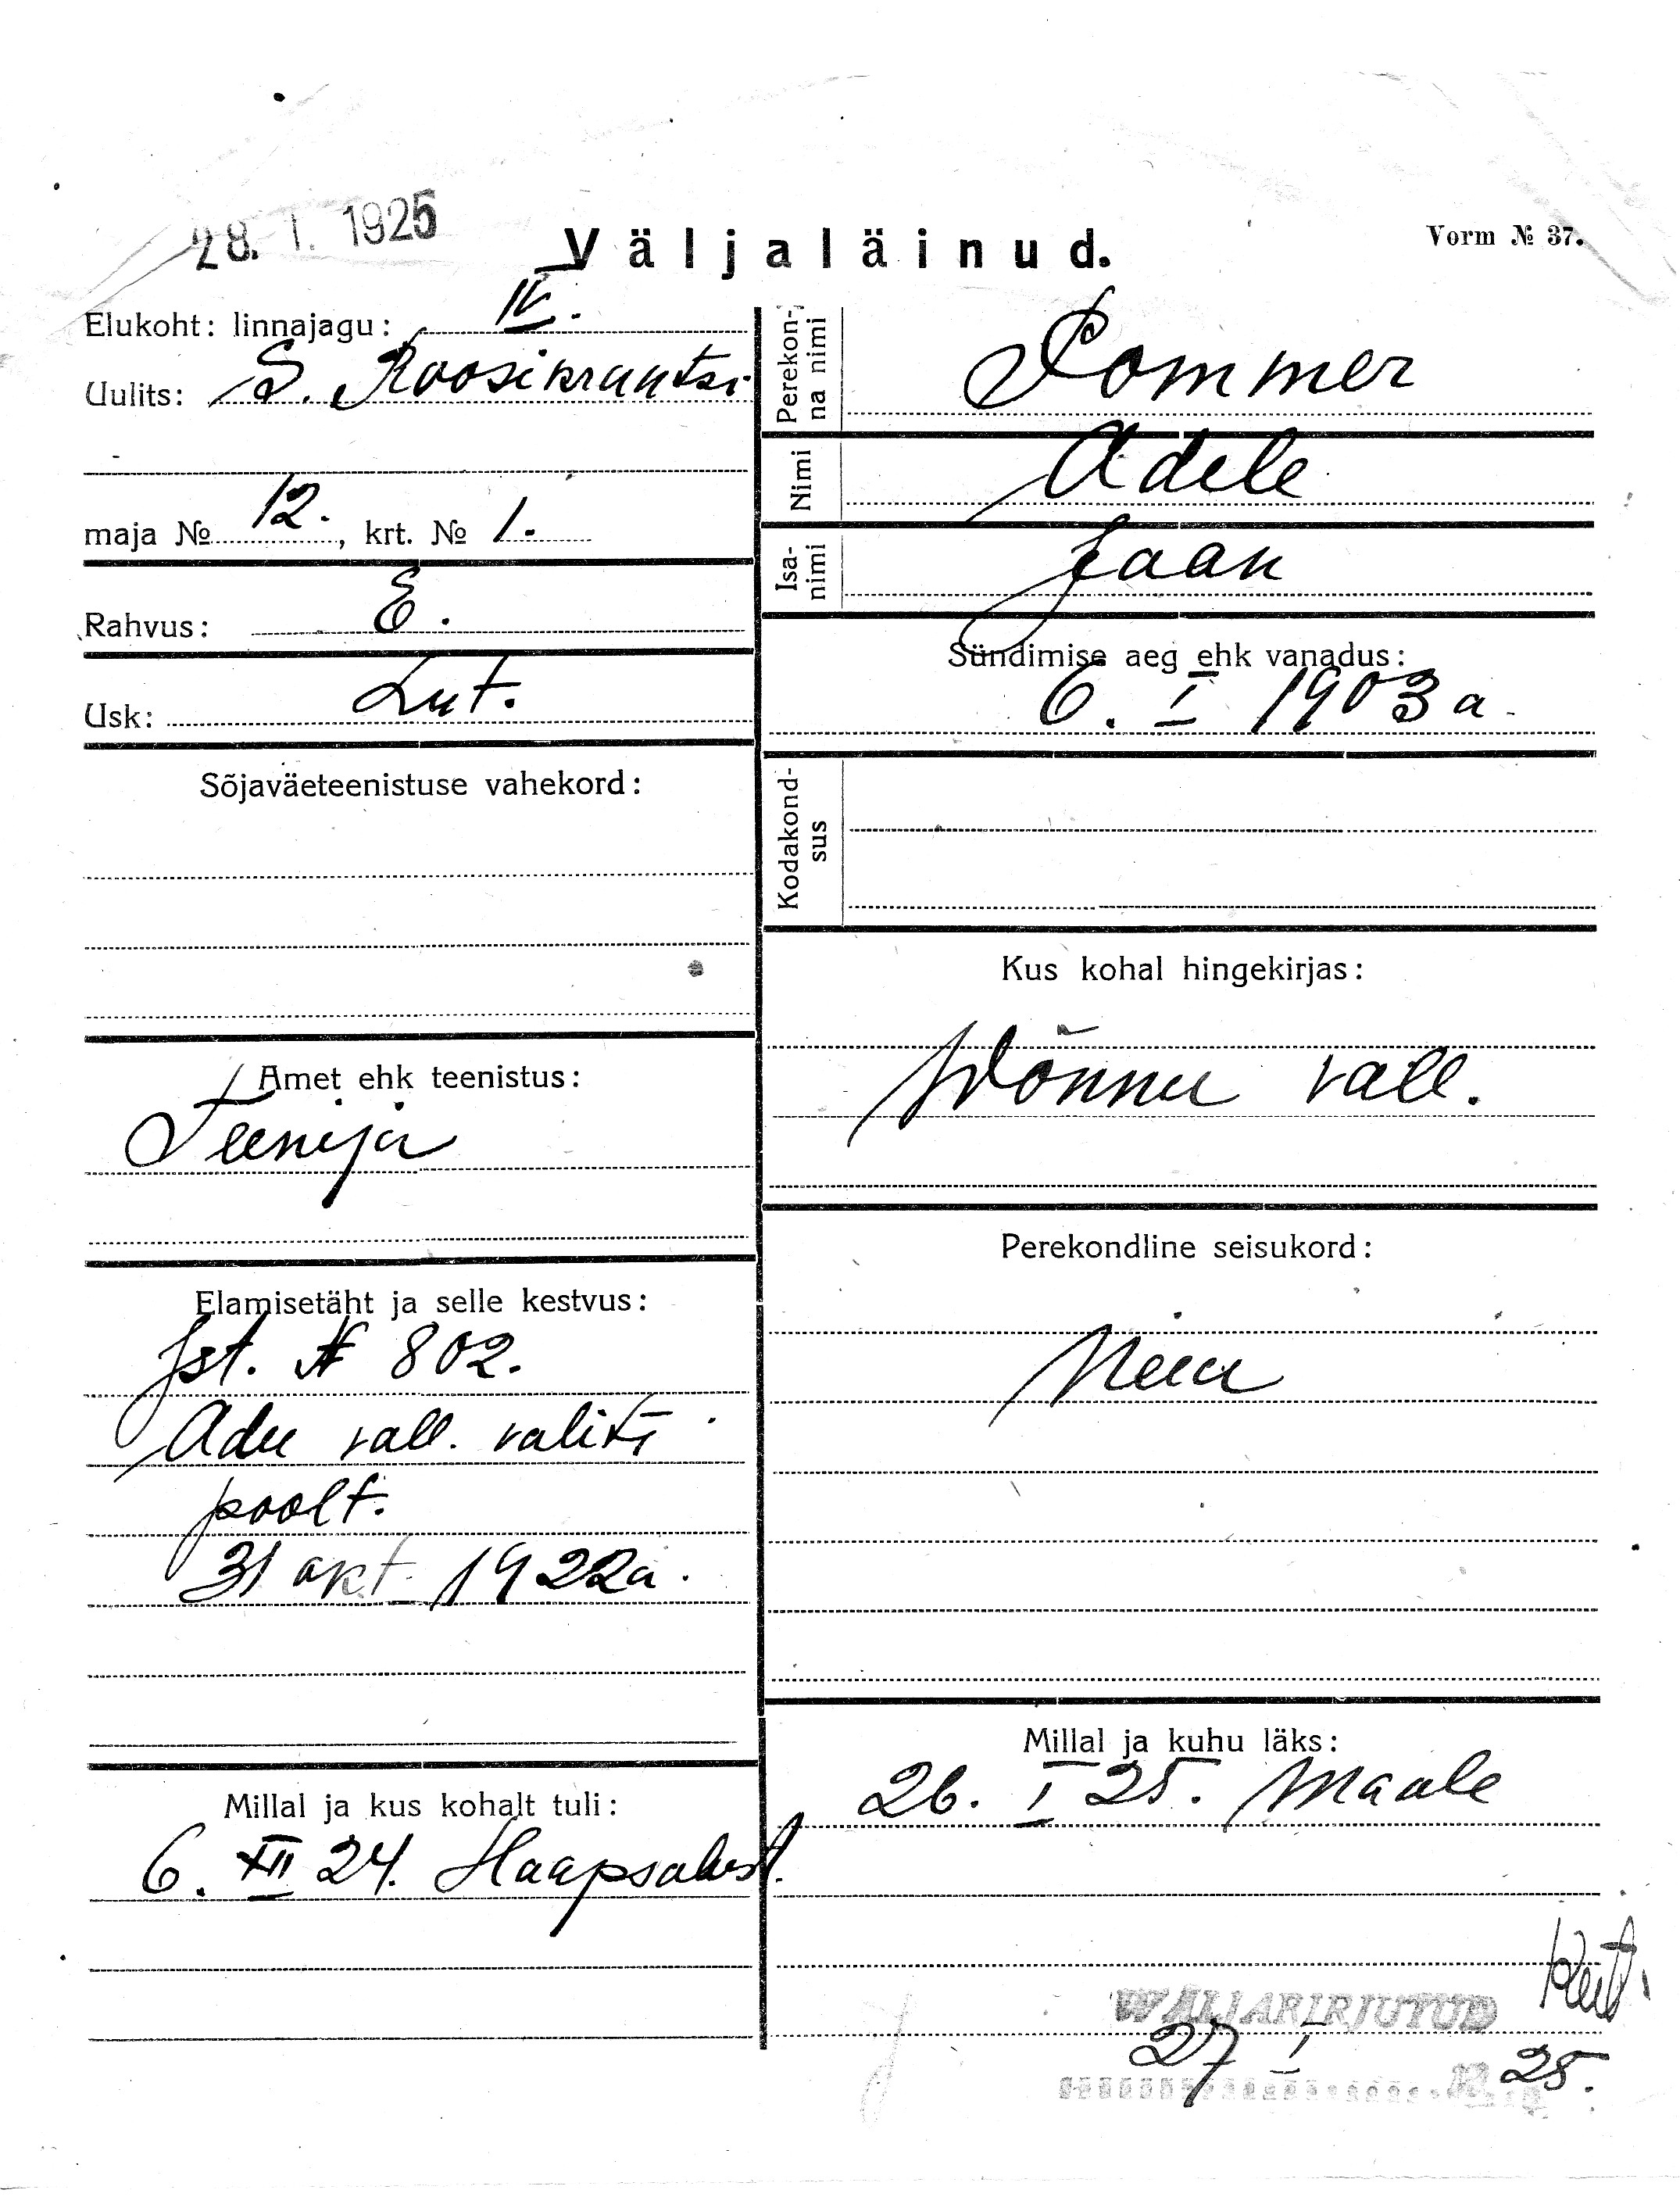 28. I. 1925
Väljaläinud.
Vorm № 37.
Elukoht: linnajagu: IV.
Uulits: S. Roosikrantsi
maja № 12., krt. № 1.
Rahvus: E.
Usk: Lut.
Sõjaväeteenistuse vahekord:
Amet ehk teenistus:
Teenija
Elamisetäht ja selle kestvus:
Ist. № 802.
vall. valits
poolt.
31 okt. 1922 a.
Millal ja kus kohalt tuli:
6. XII 24. Haapsalust.
Perekonna nimi
Pommer
Nimi
Adele
Isanimi
Jaan
Sündimise aeg ehk vanadus:
6. I 1903 a.
Kodakondsus
Kus kohal hingekirjas:
Wõnnu vall.
Perekondline seisukord:
Millal ja kuhu läks:
26. I 25. Maale
WÄLJAKIRJUTUD
27 I 25.